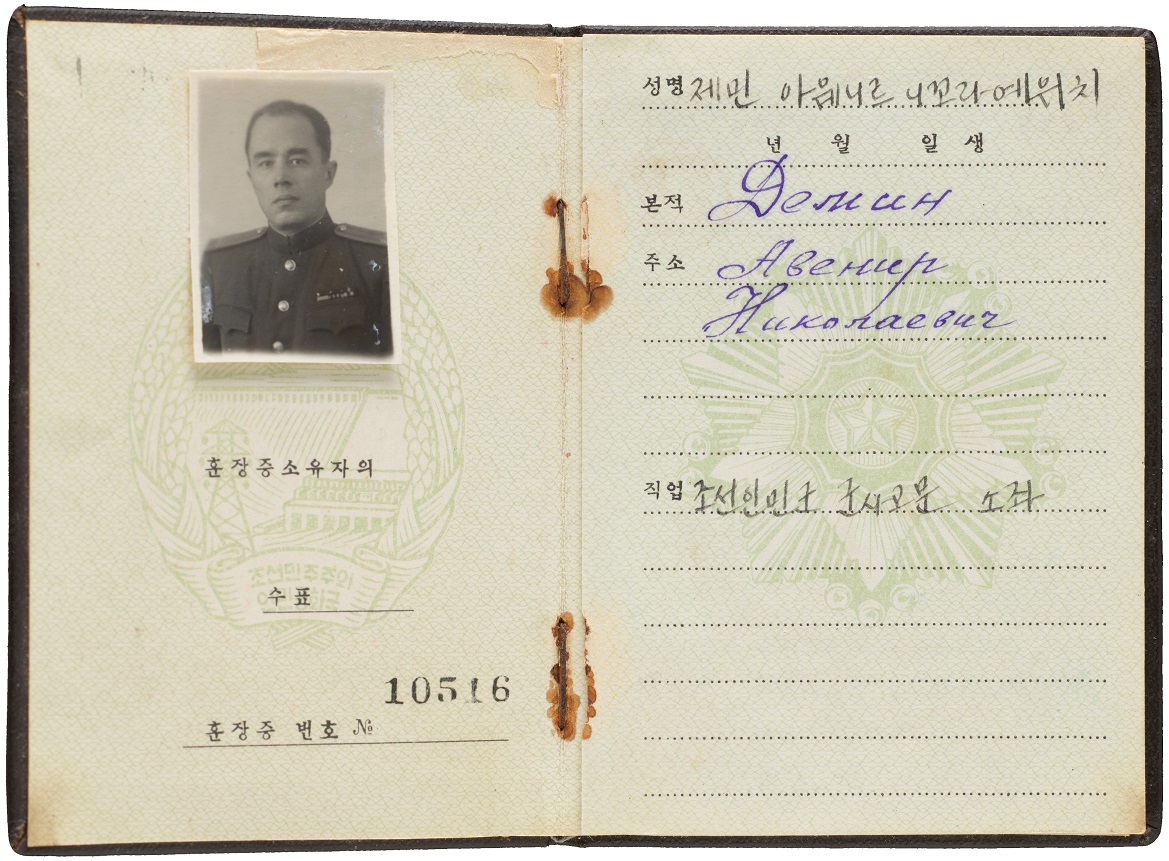 훈장증소유자의
수표
10516
훈장증 번호 №
성명 제민 아웨니르 니꼬라에위치
년 월 일생
본적 Демин
주소 Авенир
Николаевич
직업 조선인민군 군사고문 소좌